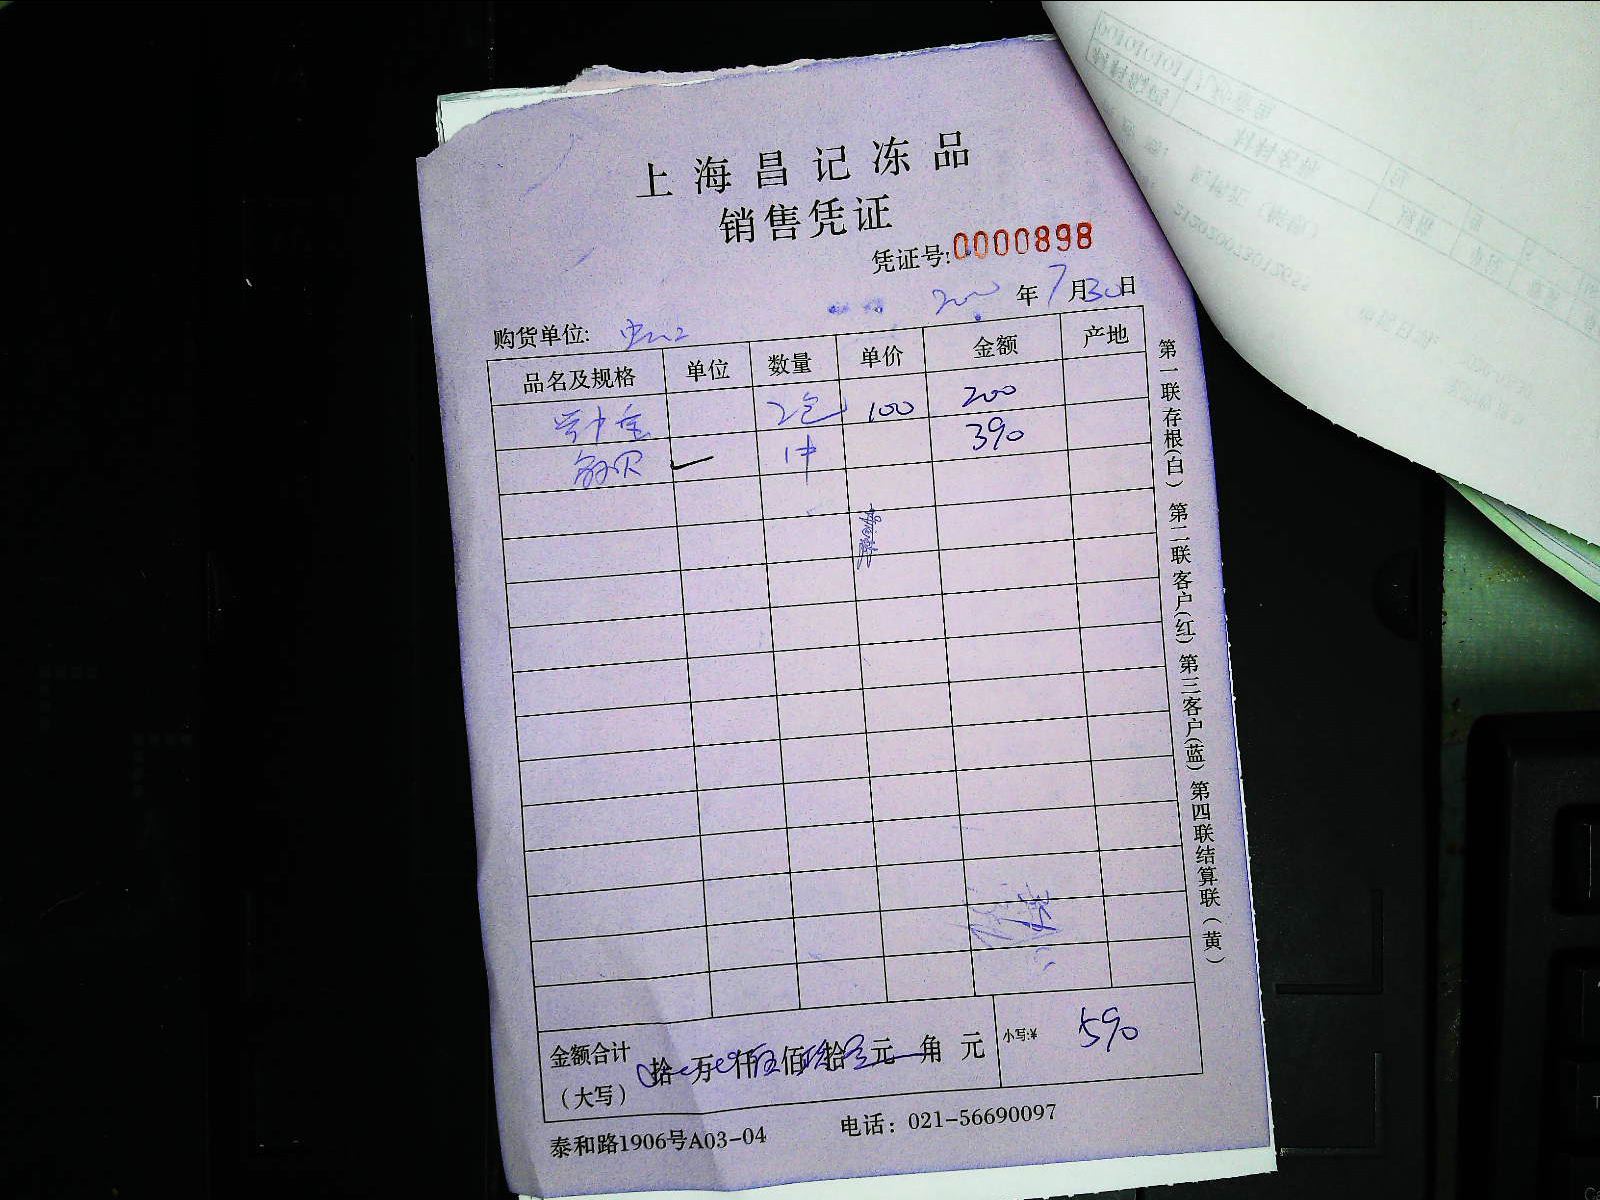 上海昌记冻品
销售凭证
凭证号:0000898
年7月30日
购货单位:
品名及规格 单位 数量 单价 金额 产地
2包 100 200
扇贝 1件 390
金额合计 拾 万 仟 伍佰 玖拾 元 角 元 小写:¥ 590
（大写）
泰和路1906号A03-04 电话：021-56690097
第一联存根(白) 第二联客户(红) 第三客户(蓝) 第四联结算联（黄）